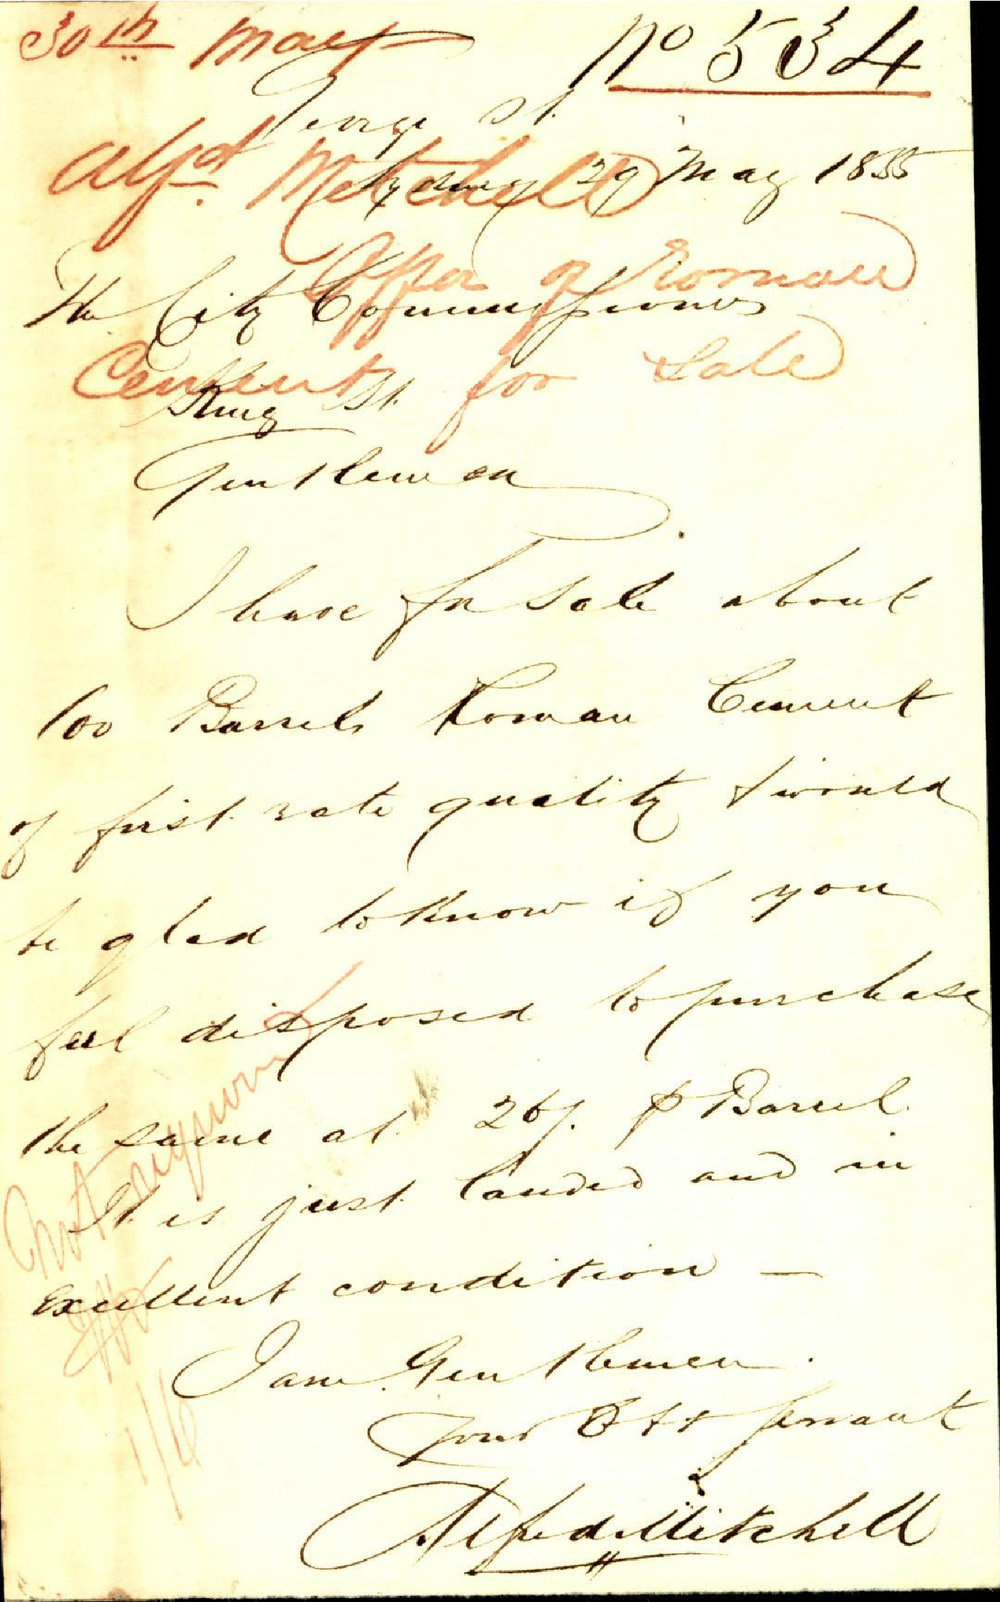 30th May
No 534
George St.
Sydney 29 May 1855
Alfd. Mitchell
Offer of Roman
Cement for Sale
The City Commissioners
King St.
Gentlemen
I have for Sale about
100 Barrels Roman Cement
of first rate quality & would
be glad to know if you
feel disposed to purchase
the same at 26/. p Barrel.
It is just landed and in
excellent condition —
I am Gentlemen.
Your Obt Servant
Alfred Mitchell
Not required
1/6